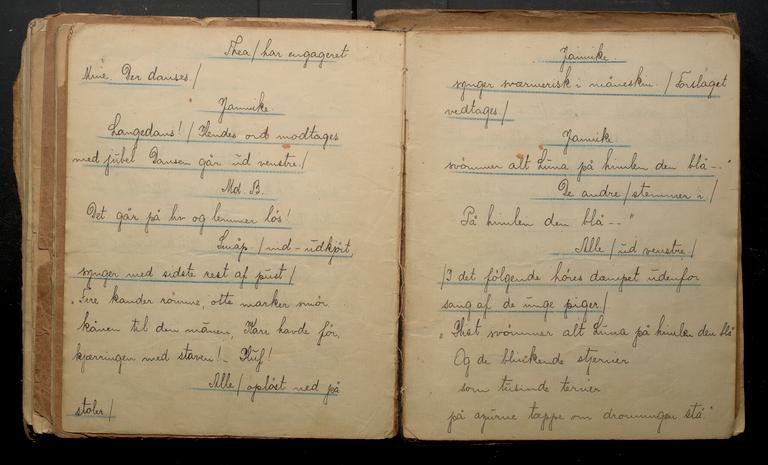 Thea / har engageret
Mine. Der danses. /
Jannike.
Langedans! / Hendes ord modtages
med jubel. Dansen går ud venstre /
Md. B.
Det går på liv og lemmer løs!
Småp / ind - udkjørt,
synger med sidste rest af pust /
"Fire kander rømme, otte marker smør.
kånen til den månen, Kare havde før,
kjærringen med staven! - Huf!
Alle / opløst ned på
stoler /
Jannike.
synger sværmerisk i måneskin. / Forslaget
vedtages /
Jannike.
svømmer alt Luna på himlen den blå --"
De andre / stemmer i /
På himlen den blå --"
Alle / ud venstre. /
/ I det følgende høres dæmpet udenfor
sang af de unge piger /
"Hist svømmer alt Luna på himlen den blå
Og de blinkende stjerner
som tusinde terner
på azurne tæppe om dronningen stå."